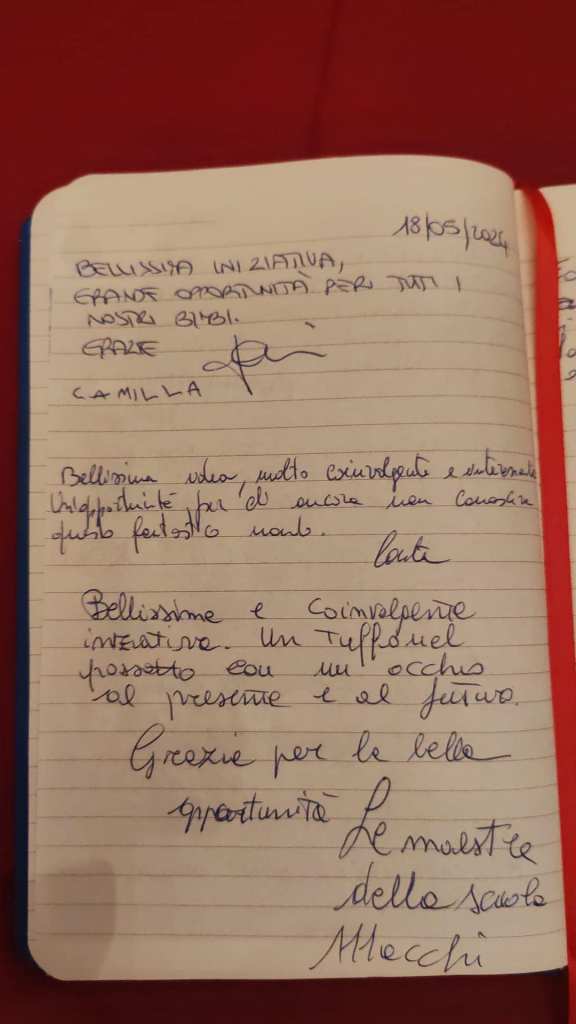 18/05/2024
BELLISSIMA INIZIATIVA,
GRANDE OPPORTUNITÀ PER TUTTI I
NOSTRI BIMBI.
GRAZIE
CAMILLA
Bellissima idea, molto coinvolgente e interessante
Un'opportunità per chi ancora non conosceva
questo fantastico mondo.
Bellissime e coinvolgente
iniziativa. Un Tuffo nel
passato con un occhio
al presente e al futuro.
Grazie per la bella
opportunità
Le maestre
della scuola